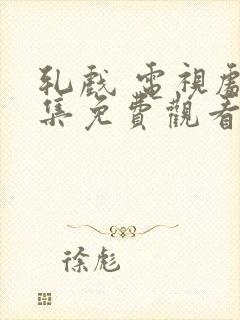 乳戲 電視處
集免費觀看
徐彪